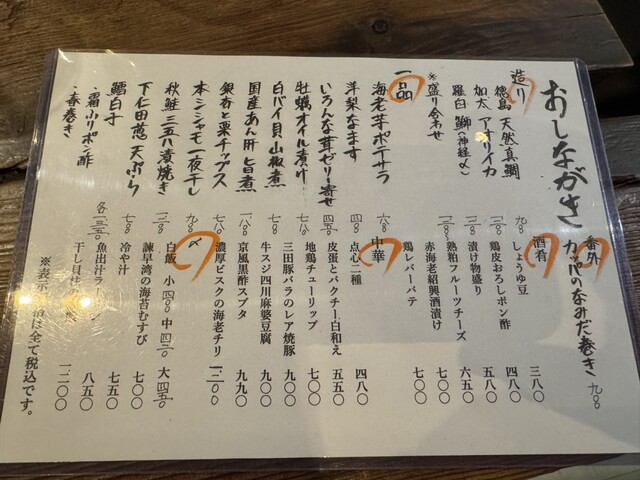 おしながき
番外 カッパのなみだ巻き 九〇〇
造り
徳島 天然真鯛 九八〇
加太 アオリイカ
羅臼 鰤(神経〆)
※盛り合わせ
一品
海老芋ポテサラ 六八〇
洋梨なます 四八〇
いろんな茸ゼリー寄せ 四五〇
牡蠣オイル漬け 七八〇
白バイ貝山椒煮 七八〇
国産あん肝旨煮
銀杏と栗チップス 七八〇
本シシャモ一夜干し 九八〇
秋鮭三五八漬焼き
下仁田葱天ぷら 七八〇
鱈白子 各一三五〇
・霜ふりポン酢
・春巻き
酒肴
しょうゆ豆 三八〇
鶏皮おろしポン酢 四八〇
漬け物盛り 五八〇
熟粕フルーツチーズ 六五〇
赤海老紹興酒漬け 七〇〇
鶏レバーパテ 七〇〇
中華
点心二種 四八〇
皮蛋とパクチー白和え 五五〇
地鶏チューリップ 七〇〇
三田豚バラのレア焼豚 九〇〇
牛スジ四川麻婆豆腐 九〇〇
京風黒酢スブタ 九九〇
濃厚ビスクの海老チリ 一二〇〇
〆
白飯 小 四〇〇 中 四二〇 大 四五〇
諫早湾の海苔むすび 七〇〇
冷や汁 七五〇
魚出汁ラー 八五〇
干し貝柱 一二〇〇
※表示 は全て税込です。